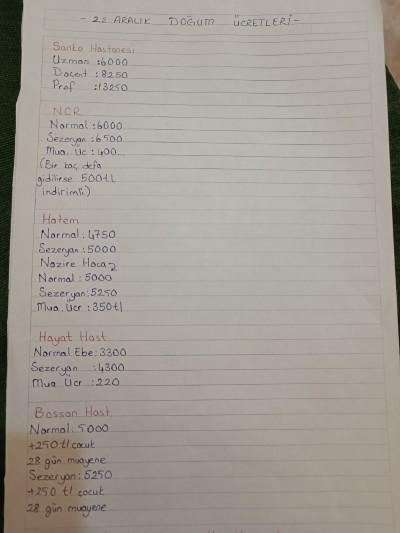 - 22 ARALIK DOĞUM ÜCRETLERİ -
Sanko Hastanesi
Uzman :6000
Doçent :8250
Prof :13250
NCR
Normal :6000
Sezeryan :6500
Mua. Üc : 400
(Bir kaç defa
gidilirse 500tl
indirimli)
Hatem
Normal : 4750
Sezeryan : 5000
Nazire Hoca
Normal : 5000
Sezeryan : 5250
Mua. Ücr : 350tl
Hayat Hast
Normal Ebe: 3300
Sezeryan :4300
Mua Ücr :220
Bossan Host.
Normal: 5000
+250 tl çocuk
28 gün muayene
Sezeryan: 5250
+250 tl çocuk
28 gün muayene